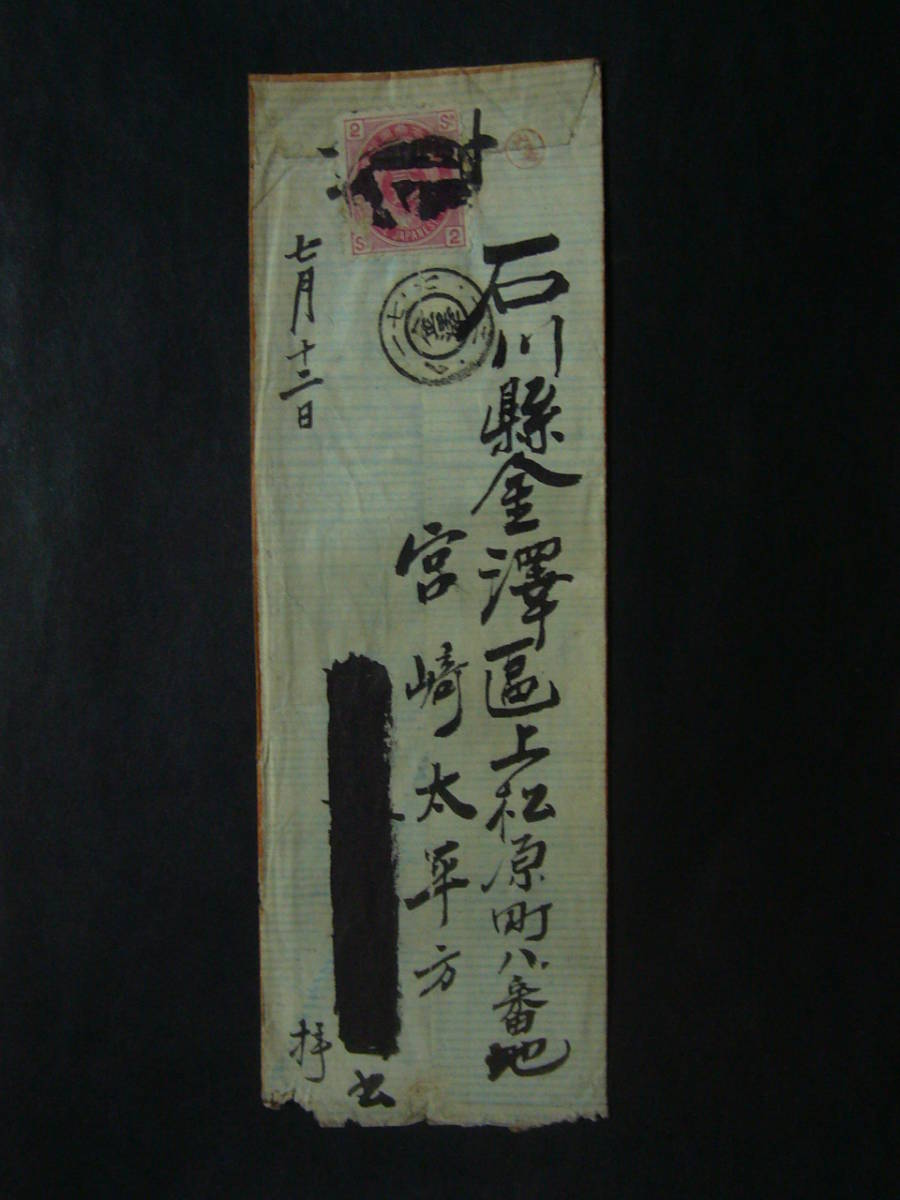 石川縣金澤區上松原町八番地
宮崎太平方
七月十二日
拝
2 Sⁿ
JAPANESE
Sⁿ 2